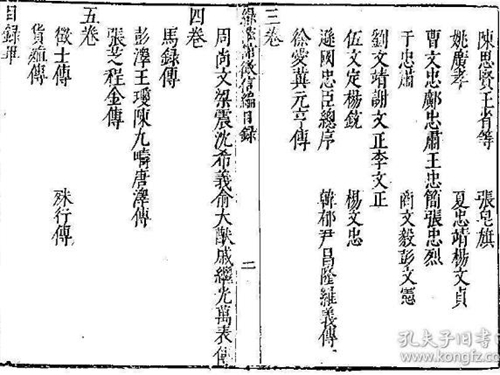 陳思賢王省等 張皂旗
姚廣孝 夏忠靖楊文貞
曹文忠鄺忠肅王忠簡張忠烈
于忠肅 商文毅彭文憲
劉文靖謝文正李文正
伍文定楊銳 楊文忠
遜國忠臣總序 韓郁尹昌隆羅義傳
徐愛冀元亨傳
三卷
綠滋館徵信編目錄 二
周尚文梁震沈希義俞大猷戚繼光萬表傳
四卷
馬錄傳
彭澤王瓊陳九疇唐澤傳
張芝程金傳
五卷
徵士傳 殊行傳
貨殖傳
目錄畢
孔夫子旧书网